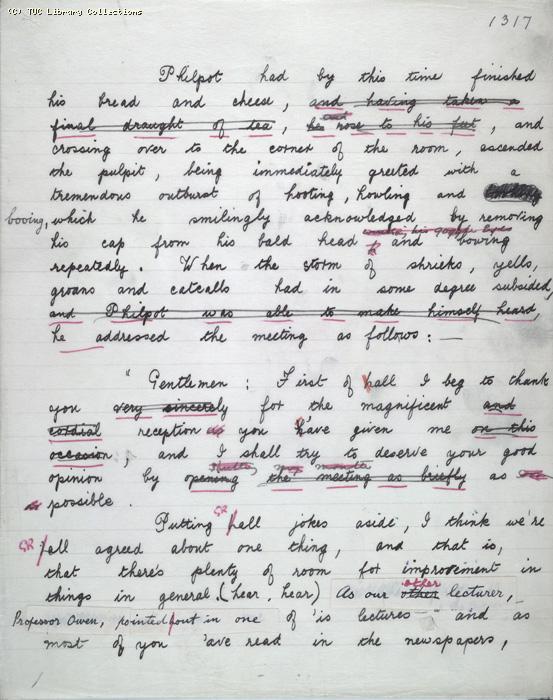 (C) TUC Library Collections
1317
Philpot had by this time finished
his bread and cheese, and having taken a
final draught of tea, he rose to his feet, and
crossing over to the corner of the room, ascended
the pulpit, being immediately greeted with a
tremendous outburst of hooting, howling and
booing, which he smilingly acknowledged by removing
his cap from his bald head and bowing
repeatedly. When the storm of shrieks, yells,
groans and catcalls had in some degree subsided,
and Philpot was able to make himself heard,
he addressed the meeting as follows: —
"Gentlemen: First of hall I beg to thank
you very sincerely for the magnificent and
cordial reception as you have given me on this
occasion, and I shall try to deserve your good
opinion by opening the meeting as briefly as
possible.
Putting hall jokes aside, I think we're
all agreed about one thing, and that is,
that there's plenty of room for improvement in
things in general. (hear, hear) As our other other lecturer,
Professor Owen, pointed out in one of 'is lectures and as
most of you 'ave read in the newspapers,